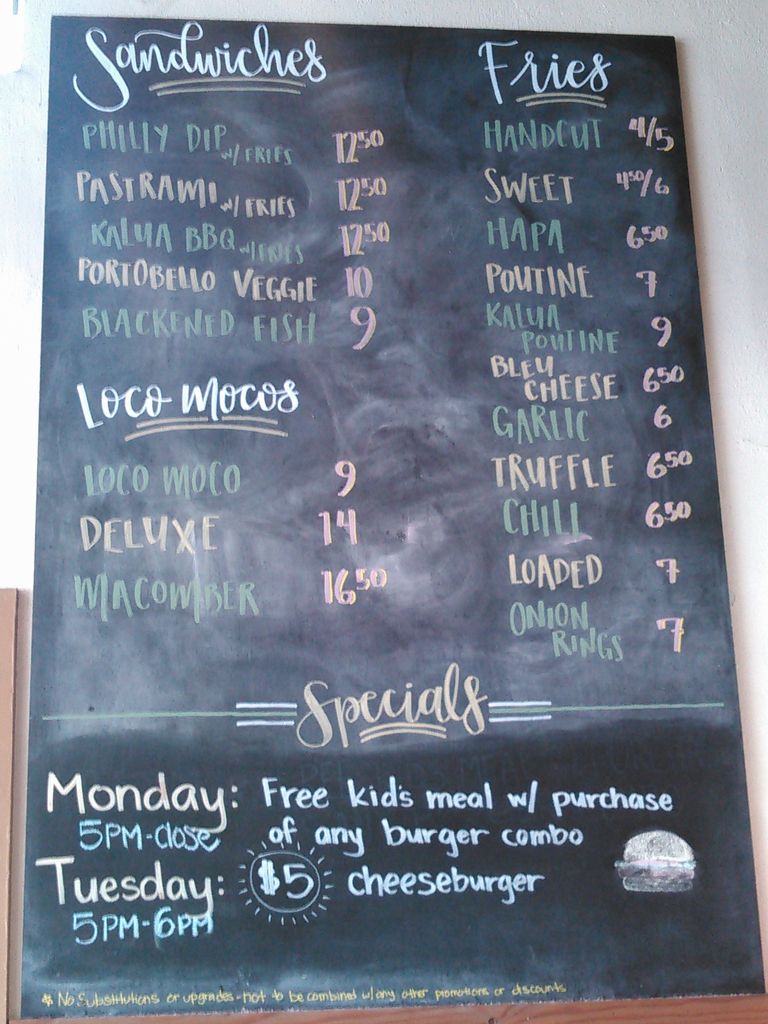 Sandwiches
PHILLY DIP w/ FRIES 12⁵⁰
PASTRAMI w/ FRIES 12⁵⁰
KALUA BBQ w/ FRIES 12⁵⁰
PORTOBELLO VEGGIE 10
BLACKENED FISH 9
Loco Mocos
LOCO MOCO 9
DELUXE 14
MACOMBER 16⁵⁰
Fries
HANDCUT 4/5
SWEET 4⁵⁰/6
HAPA 6⁵⁰
POUTINE 7
KALUA
POUTINE 9
BLEU
CHEESE 6⁵⁰
GARLIC 6
TRUFFLE 6⁵⁰
CHILI 6⁵⁰
LOADED 7
ONION
RINGS 7
Specials
Monday: Free kid's meal w/ purchase
5PM-Close of any burger combo
Tuesday: $5 cheeseburger
5PM-6PM
* No Substitutions or upgrades - not to be combined w/ any other promotions or discounts